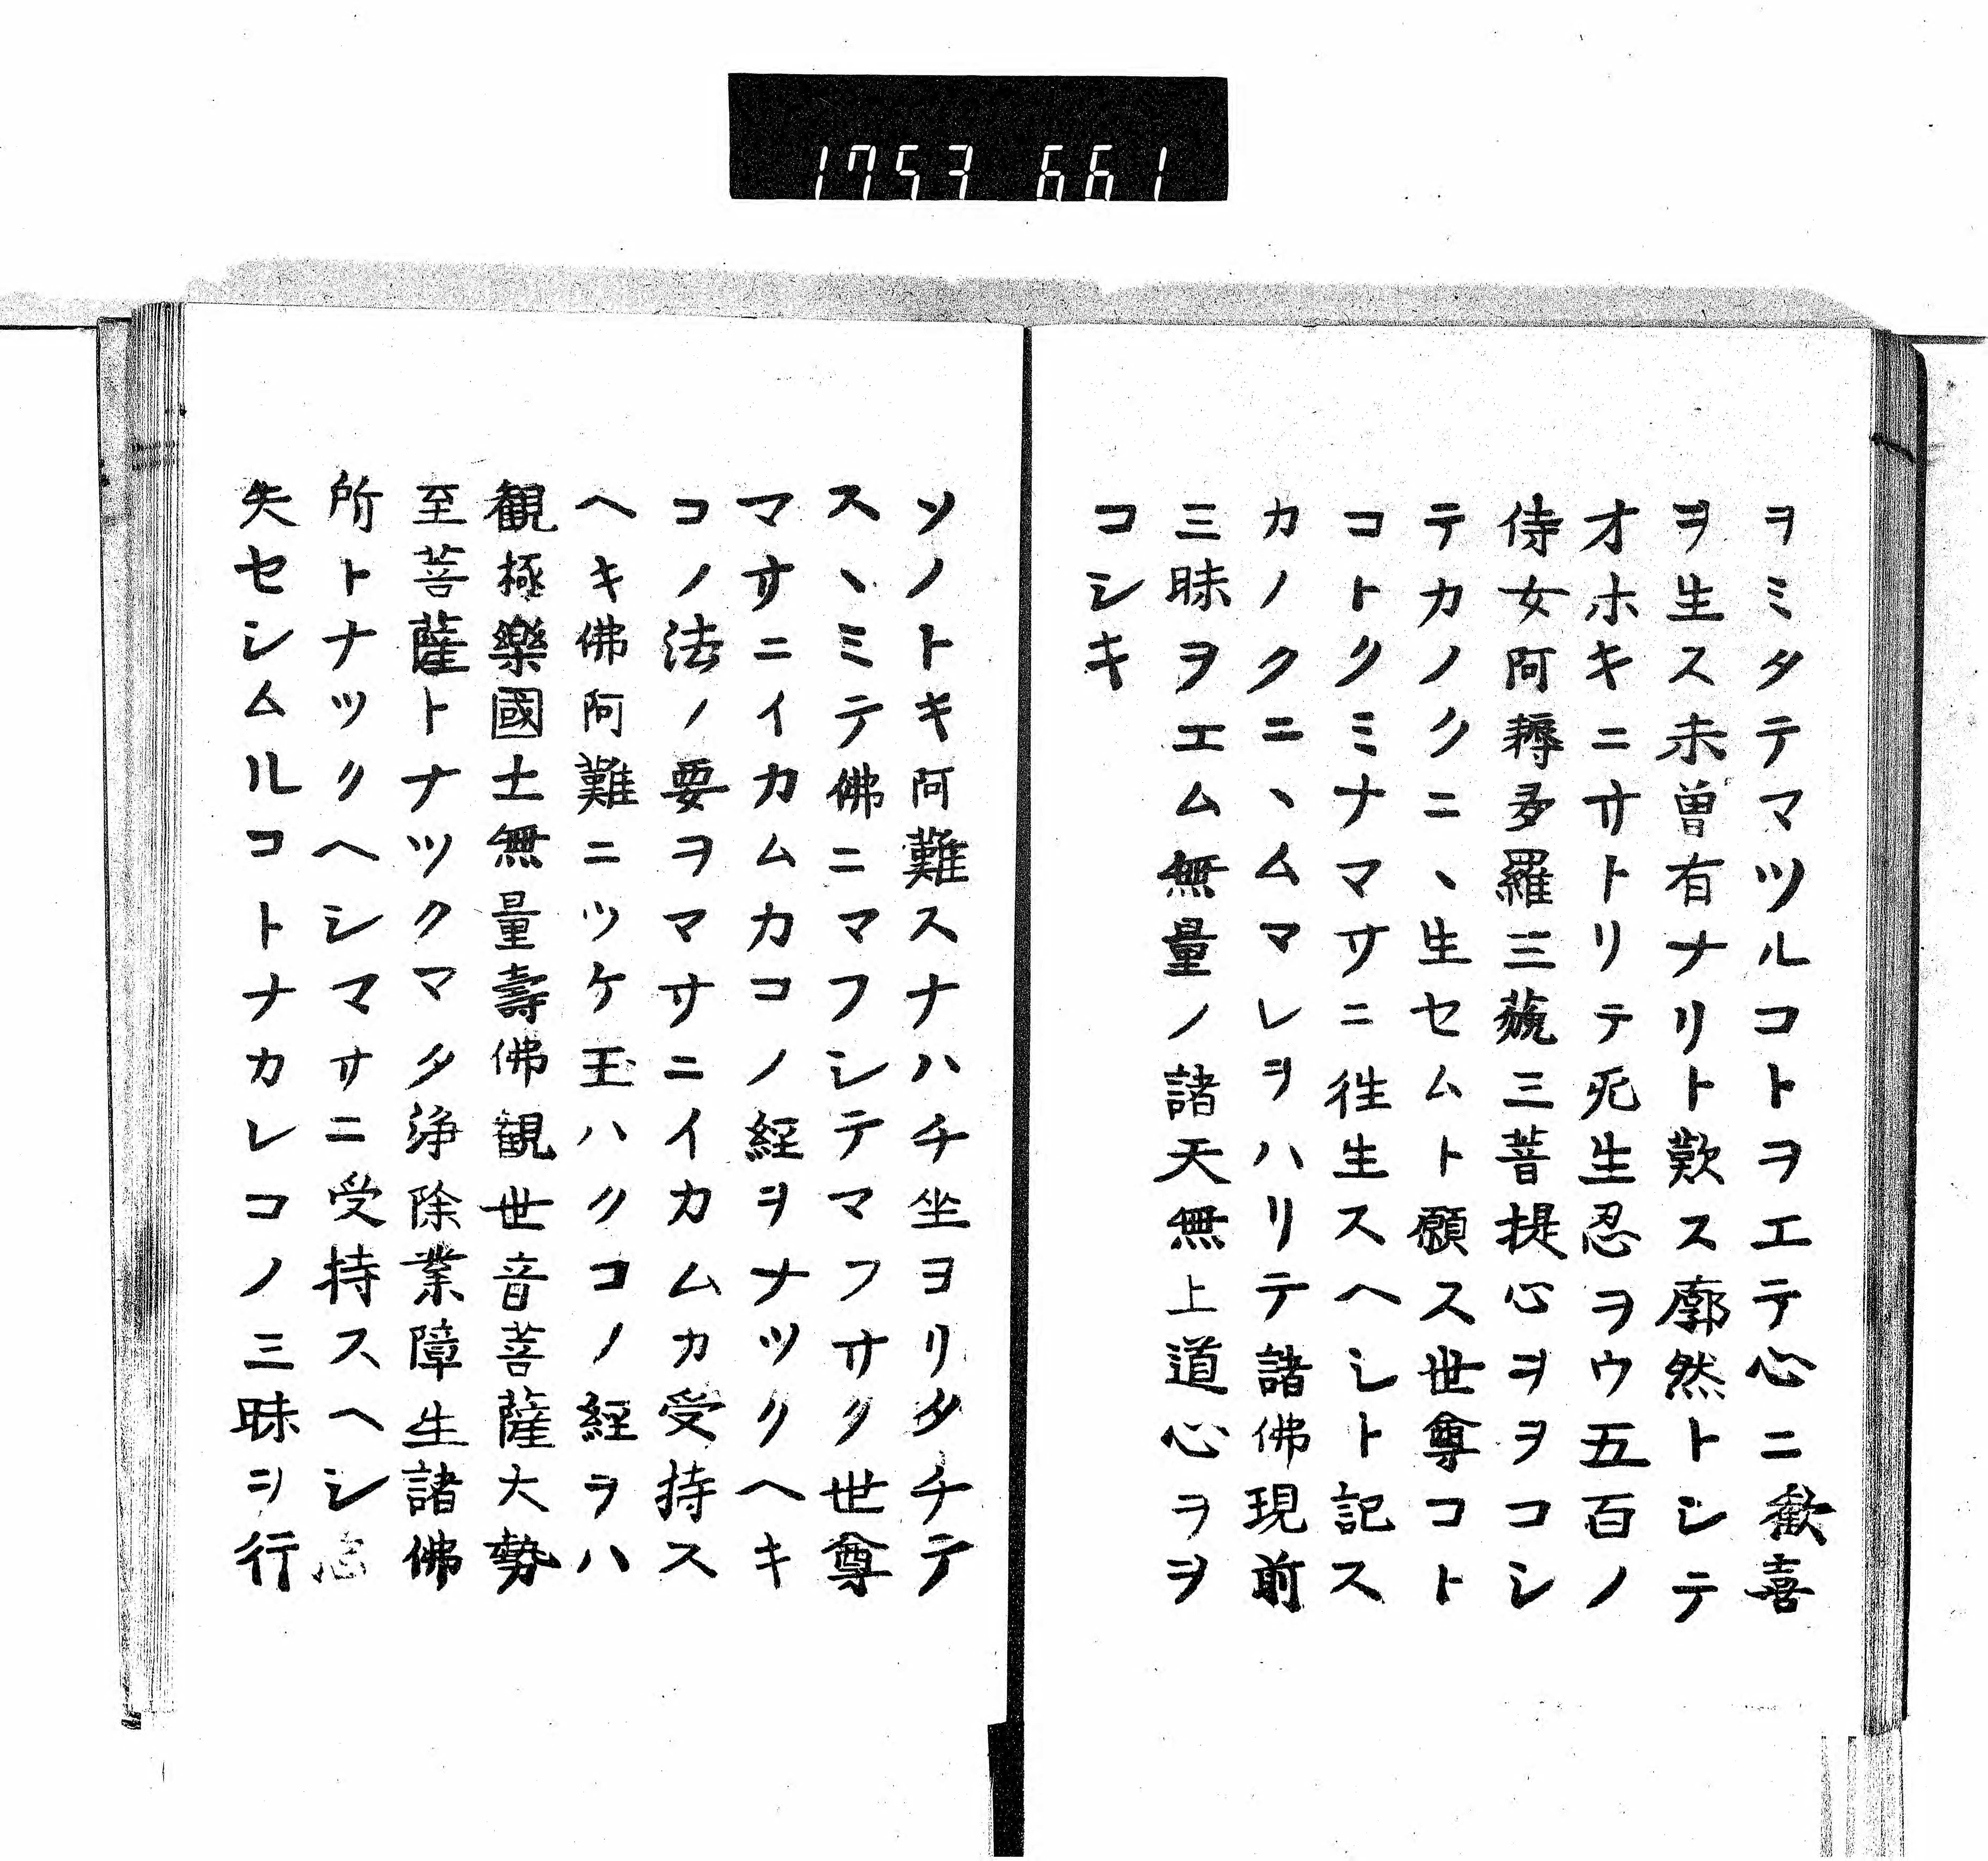 1753 661
ヲミタテマツルコトヲエテ心ニ歓喜
ヲ生ス未曽有ナリト歎ス廓然トシテ
オホキニサトリテ死生忍ヲウ五百ノ
侍女阿耨多羅三藐三菩提心ヲヲコシ
テカノクニヽ生セムト願ス世尊コト
コトクミナマサニ徃生スヘシト記ス
カノクニヽムマレヲハリテ諸佛現前
三昧ヲエム無量ノ諸天無上道心ヲヲ
コシキ
ソノトキ阿難スナハチ坐ヨリタチテ
スヽミテ佛ニマフシテマフサク世尊
マサニイカムカコノ経ヲナツクヘキ
コノ法ノ要ヲマサニイカムカ受持ス
ヘキ佛阿難ニツケ玉ハクコノ経ヲハ
観極樂國土無量壽佛観世音菩薩大勢
至菩薩トナツクマタ浄除業障生諸佛
所トナツクヘシマサニ受持スヘシ忘
失セシムルコトナカレコノ三昧ヲ行